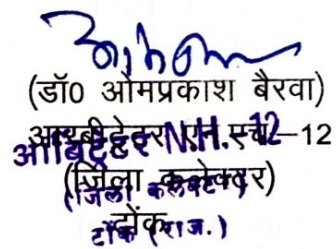 (डॉ0 ओमप्रकाश बैरवा)
आरबीट्रेटर एन.एच.-12
आर्बिट्रेटर N.H. 12
(जिला कलेक्टर)
(जिला कलेक्टर)
टोंक
टोंक (राज.)